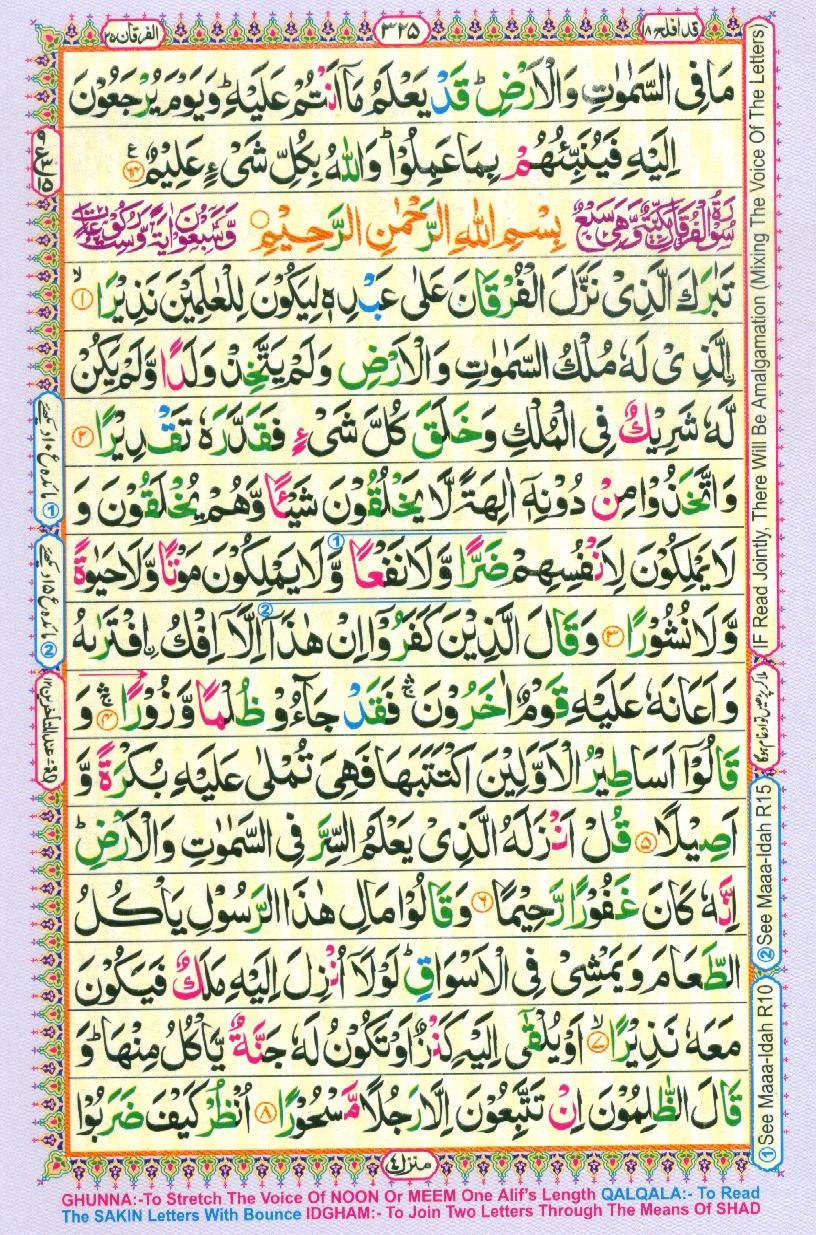 قد افلح ۱۸
۳۲۵
الفرقان ۲۵
مَا فِی السَّمٰوٰتِ وَالْاَرْضِ ؕ قَدْ یَعْلَمُ مَاۤ اَنْتُمْ عَلَیْهِ ؕ وَیَوْمَ یُرْجَعُوْنَ
اِلَیْهِ فَیُنَبِّئُهُمْ بِمَا عَمِلُوْا ؕ وَاللّٰهُ بِكُلِّ شَیْءٍ عَلِیْمٌ ۟﴿۶۴﴾
سُوْرَةُ الْفُرْقَانِ مَكِّیَّةٌ وَّهِیَ سَبْعٌ بِسْمِ اللّٰهِ الرَّحْمٰنِ الرَّحِیْمِ ○ وَّسَبْعُوْنَ اٰیَةً وَّسِتُّ رُكُوْعَاتٍ
تَبٰرَكَ الَّذِیْ نَزَّلَ الْفُرْقَانَ عَلٰی عَبْدِهٖ لِیَكُوْنَ لِلْعٰلَمِیْنَ نَذِیْرًا ۙ﴿۱﴾
اۨلَّذِیْ لَهٗ مُلْكُ السَّمٰوٰتِ وَالْاَرْضِ وَلَمْ یَتَّخِذْ وَلَدًا وَّلَمْ یَكُنْ
لَّهٗ شَرِیْكٌ فِی الْمُلْكِ وَخَلَقَ كُلَّ شَیْءٍ فَقَدَّرَهٗ تَقْدِیْرًا ﴿۲﴾
وَاتَّخَذُوْا مِنْ دُوْنِهٖۤ اٰلِهَةً لَّا یَخْلُقُوْنَ شَیْـًٔا وَّهُمْ یُخْلَقُوْنَ وَ
لَا یَمْلِكُوْنَ لِاَنْفُسِهِمْ ضَرًّا وَّلَا نَفْعًا ① وَّلَا یَمْلِكُوْنَ مَوْتًا وَّلَا حَیٰوةً
وَّلَا نُشُوْرًا ﴿۳﴾ وَقَالَ الَّذِیْنَ كَفَرُوْۤا اِنْ هٰذَاۤ ② اِلَّاۤ اِفْكُ اۨفْتَرٰىهُ
وَاَعَانَهٗ عَلَیْهِ قَوْمٌ اٰخَرُوْنَ ۛۚ فَقَدْ جَآءُوْ ظُلْمًا وَّزُوْرًا ۛۚ﴿۴﴾ وَ
قَالُوْۤا اَسَاطِیْرُ الْاَوَّلِیْنَ اكْتَتَبَهَا فَهِیَ تُمْلٰی عَلَیْهِ بُكْرَةً وَّ
اَصِیْلًا ﴿۵﴾ قُلْ اَنْزَلَهُ الَّذِیْ یَعْلَمُ السِّرَّ فِی السَّمٰوٰتِ وَالْاَرْضِ ؕ
اِنَّهٗ كَانَ غَفُوْرًا رَّحِیْمًا ﴿۶﴾ وَقَالُوْا مَالِ هٰذَا الرَّسُوْلِ یَاْكُلُ
الطَّعَامَ وَیَمْشِیْ فِی الْاَسْوَاقِ ؕ لَوْلَاۤ اُنْزِلَ اِلَیْهِ مَلَكٌ فَیَكُوْنَ
مَعَهٗ نَذِیْرًا ۙ﴿۷﴾ اَوْ یُلْقٰۤی اِلَیْهِ كَنْزٌ اَوْ تَكُوْنُ لَهٗ جَنَّةٌ یَّاْكُلُ مِنْهَا ؕ وَ
قَالَ الظّٰلِمُوْنَ اِنْ تَتَّبِعُوْنَ اِلَّا رَجُلًا مَّسْحُوْرًا ﴿۸﴾ اُنْظُرْ كَیْفَ ضَرَبُوْا
منزل ۴
IF Read Jointly, There Will Be Amalgamation (Mixing The Voice Of The Letters)
②See Maaa-Idah R15
①See Maaa-Idah R10
① مائدہ ع ۱۰ دیکھئے
② مائدہ ع ۱۵ دیکھئے
GHUNNA:-To Stretch The Voice Of NOON Or MEEM One Alif's Length QALQALA:- To Read
The SAKIN Letters With Bounce IDGHAM:- To Join Two Letters Through The Means Of SHAD